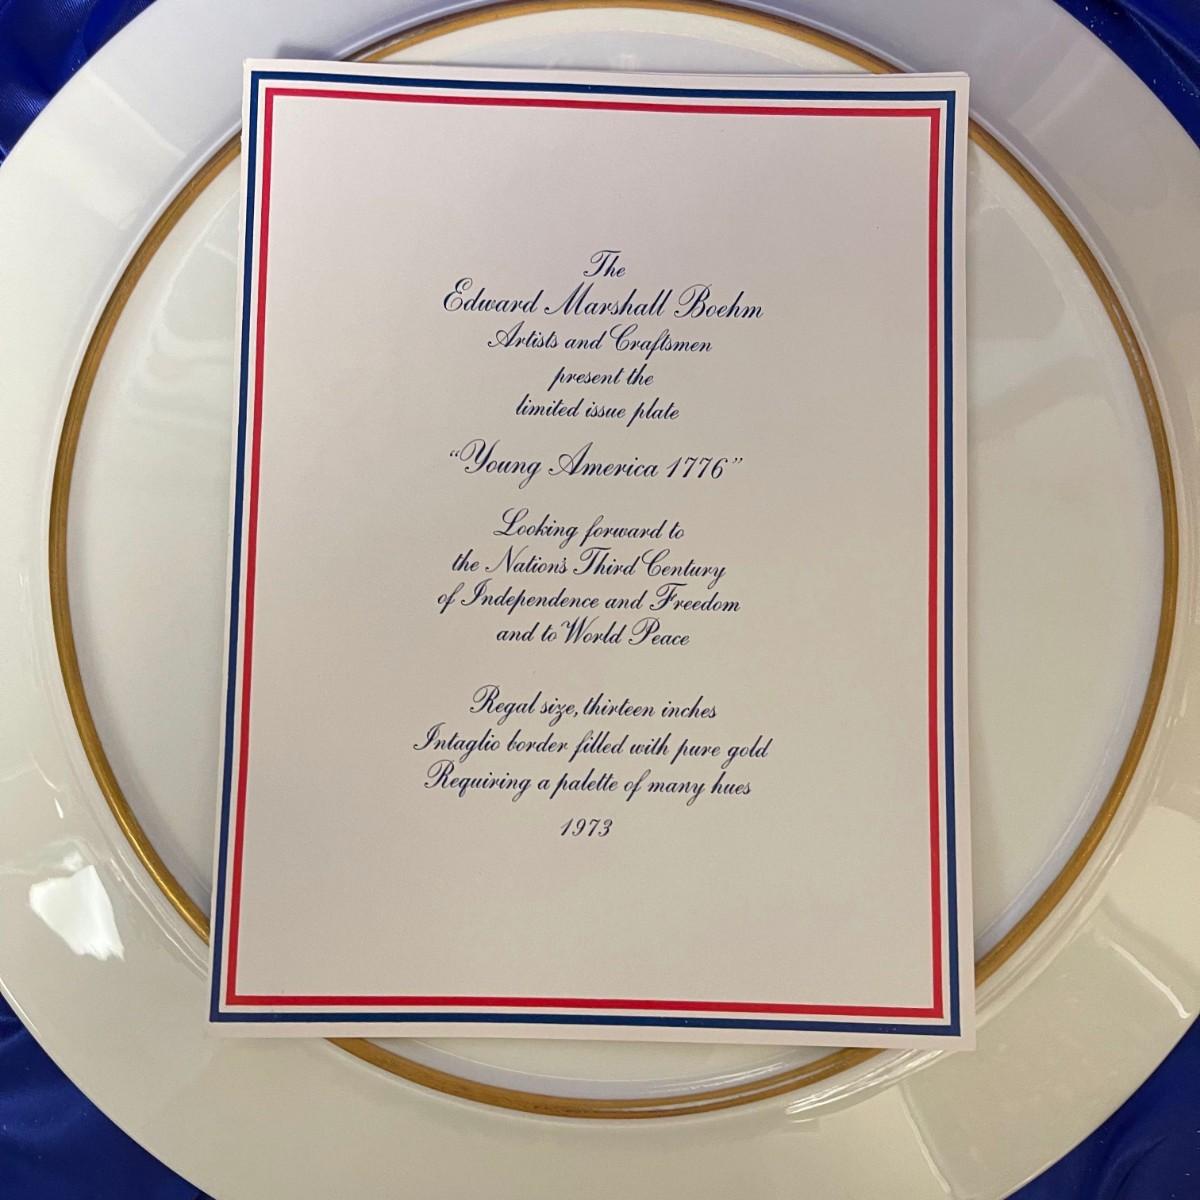 The
Edward Marshall Boehm
Artists and Craftsmen
present the
limited issue plate
“Young America 1776”
Looking forward to
the Nation's Third Century
of Independence and Freedom
and to World Peace
Regal size, thirteen inches
Intaglio border filled with pure gold
Requiring a palette of many hues
1973